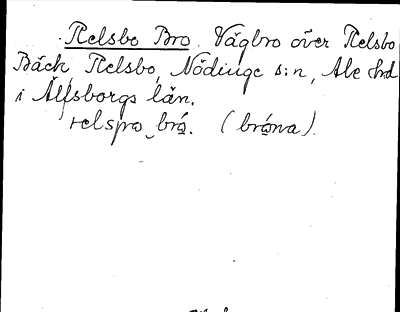 Relsbo Bro. Vägbro över Relsbo
Bäck, Relsbo, Nödinge s:n, Ale hd
i Älfsborgs län.
relspo brо̄. (bróna).